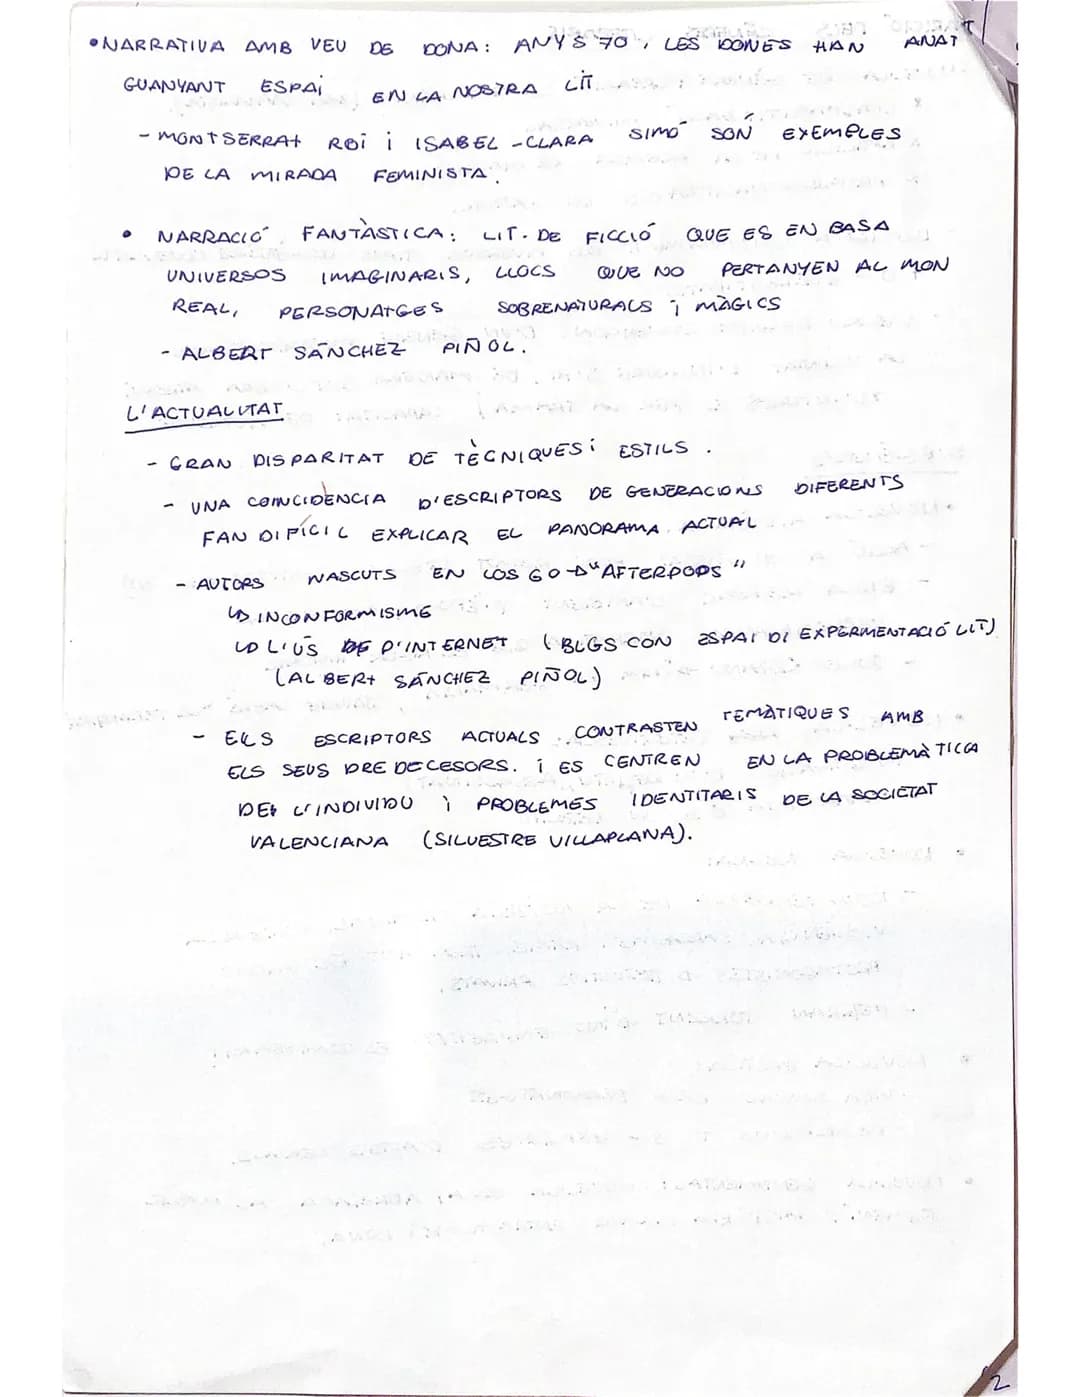 •NARRATIVA AMB VEU DE DONA: ANYS 70, LES DONES HAN ANAT
GUANYANT ESPAi EN LA NOSTRA LÍT.
- MONTSERRAT ROi i ISABEL-CLARA SIMÓ SÓN EXEMPLES
DE LA MIRADA FEMINISTA.
• NARRACIÓ FANTÀSTICA: LIT. DE FICCIÓ QUE ES EN BASA
UNIVERSOS IMAGINARIS, LLOCS QUE NO PERTANYEN AL MON
REAL, PERSONATGES SOBRENATURALS i MÀGICS
- ALBERT SÁNCHEZ PIÑOL.
L'ACTUALITAT
- GRAN DISPARITAT DE TÈCNIQUES i ESTILS.
- UNA COINCIDÈNCIA D'ESCRIPTORS DE GENERACIONS DIFERENTS
FAN DIFÍCIL EXPLICAR EL PANORAMA ACTUAL
- AUTORS NASCUTS EN LOS 60 → "AFTERPOPS"
↳ INCONFORMISME
↳ L'ÚS DE D'INTERNET (BLGS CON ESPAI DI EXPERMENTACIÓ LIT)
(ALBERT SÁNCHEZ PIÑOL)
- ELS ESCRIPTORS ACTUALS CONTRASTEN TEMÀTIQUES AMB
ELS SEUS PREDECESORS. i ES CENTREN EN LA PROBLEMÀTICA
DE L'INDIVIDU i PROBLEMES IDENTITARIS DE LA SOCIETAT
VALENCIANA (SILVESTRE VILLAPLANA).
2